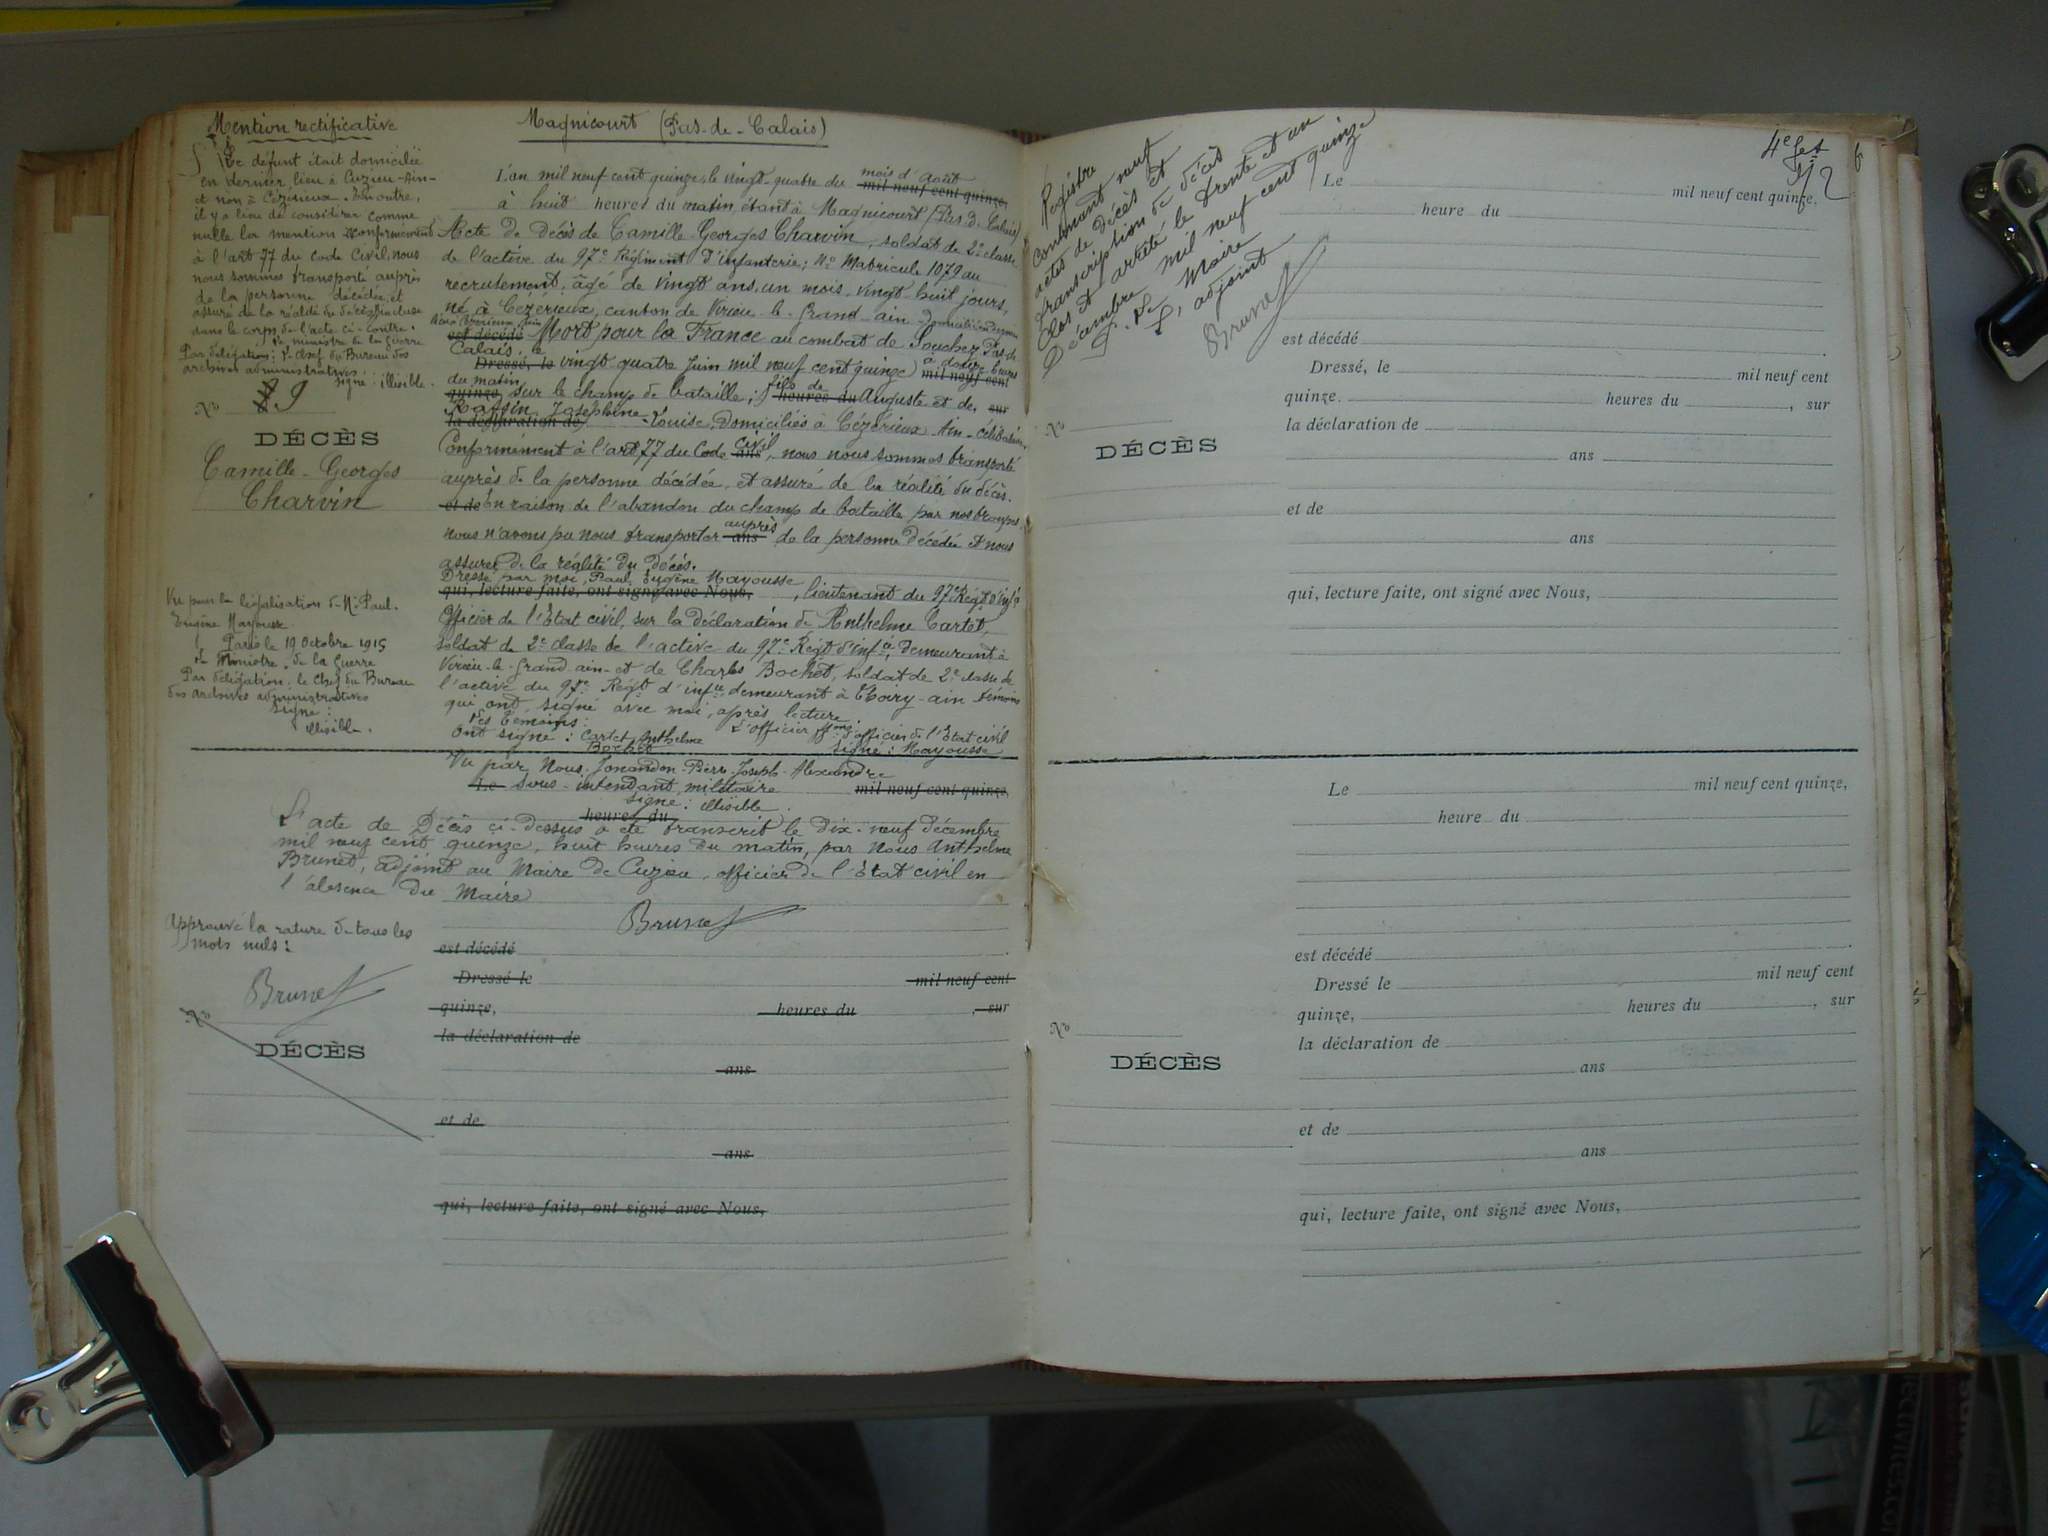 Mention rectificative
Le défunt était domicilié
en dernier lieu à Cuzieu-Ain-
et non à Cézérieux. En outre,
il y a lieu de considérer comme
nulle la mention "Conformément
à l'art 77 du Code Civil, nous
nous sommes transporté auprès
de la personne décédée, et
assuré de la réalité du décès" incluse
dans le corps de l'acte ci-contre.
Le ministre de la guerre
Par délégation: Le chef du Bureau des
archives administratives
signé: illisible.
No 9
DÉCÈS
Camille-Georges
Charvin
Vu pour la légalisation de M. Paul.
Eugène Mayousse
Paris le 19 Octobre 1915
Le Ministre de la Guerre
Par délégation, le Chef du Bureau
des archives administratives
signé:
illisible.
Magnicourt (Pas-de-Calais)
L'an mil neuf cent quinze, le vingt-quatre du mois d'août mil neuf cent quinze,
à huit heures du matin, étant à Magnicourt (Pas-d-Calais)
Acte de Décès de Camille-Georges Charvin, soldat de 2e classe
de l'active du 97e Régiment d'infanterie; No Matricule 1079 au
recrutement, âgé de vingt ans, un mois, vingt-huit jours,
né à Cézérieux, canton de Virieu-le-Grand-ain-
est décédé Mort pour la France au combat de Souchez, Pas-de
Calais, le
Dressé, le vingt quatre Juin mil neuf cent quinze, à heures mil neuf cent
du matin
quinze, sur le champ de bataille; fils de heures du Auguste et de, sur
Raffin Joséphine-Louise, domiciliés à Cézérieux Ain-célibataire
la déclaration de
Conformément à l'art 77 du Code civil ans, nous nous sommes transporté
auprès de la personne décédée, et assuré de la réalité du décès.
et de En raison de l'abandon du champ de bataille par nos troupes,
nous n'avons pu nous transporter auprès ans de la personne décédée et nous
assurer de la réalité du décès.
Dressé par moi, Paul, Eugène Mayousse
qui, lecture faite, ont signé avec Nous, , lieutenant du 97e Régt d'infie
Officier de l'Etat civil, sur la déclaration de Anthelme Cartet,
soldat de 2e classe de l'active du 97e Régt d'infie, demeurant à
Virieu-le-Grand-ain-et de Charles Bochet, soldat de 2e classe de
l'active du 97e Régt d'infie demeurant à Thoiry-ain témoins
qui ont signé avec moi, après lecture.
Les témoins: L'officier d'officier de l'Etat civil
Ont signé: Cartet Anthelme signé: Mayousse
Bochet
Vu par Nous, Jonandon-Pierre-Joseph-Alexandre
Le Sous-intendant militaire mil neuf cent quinze,
signé: illisible.
heures du
L'acte de Décès ci-dessus a été transcrit le dix-neuf décembre
mil neuf cent quinze, huit heures du matin, par Nous Anthelme
Brunet, adjoint au Maire de Cuzieu, officier de l'Etat civil en
l'absence du Maire
Brunet
Approuvé la rature de tous les
mots nuls:
Brunet
est décédé
Dressé le mil neuf cent
quinze, heures du , sur
la déclaration de
No
DÉCÈS
ans
et de
ans
qui, lecture faite, ont signé avec Nous,
Registre
contenant neuf
actes de décès et
transcription de décès
Clos et arrêté le trente et un
Décembre mil neuf cent quinze
P. Le Maire
L'adjoint
Brunet
4e fet
12
Le mil neuf cent quinze,
heure du
est décédé
Dressé, le mil neuf cent
quinze. heures du , sur
la déclaration de
No
DÉCÈS
ans
et de
ans
qui, lecture faite, ont signé avec Nous,
Le mil neuf cent quinze,
heure du
est décédé
Dressé le mil neuf cent
quinze, heures du , sur
la déclaration de
No
DÉCÈS
ans
et de
ans
qui, lecture faite, ont signé avec Nous,